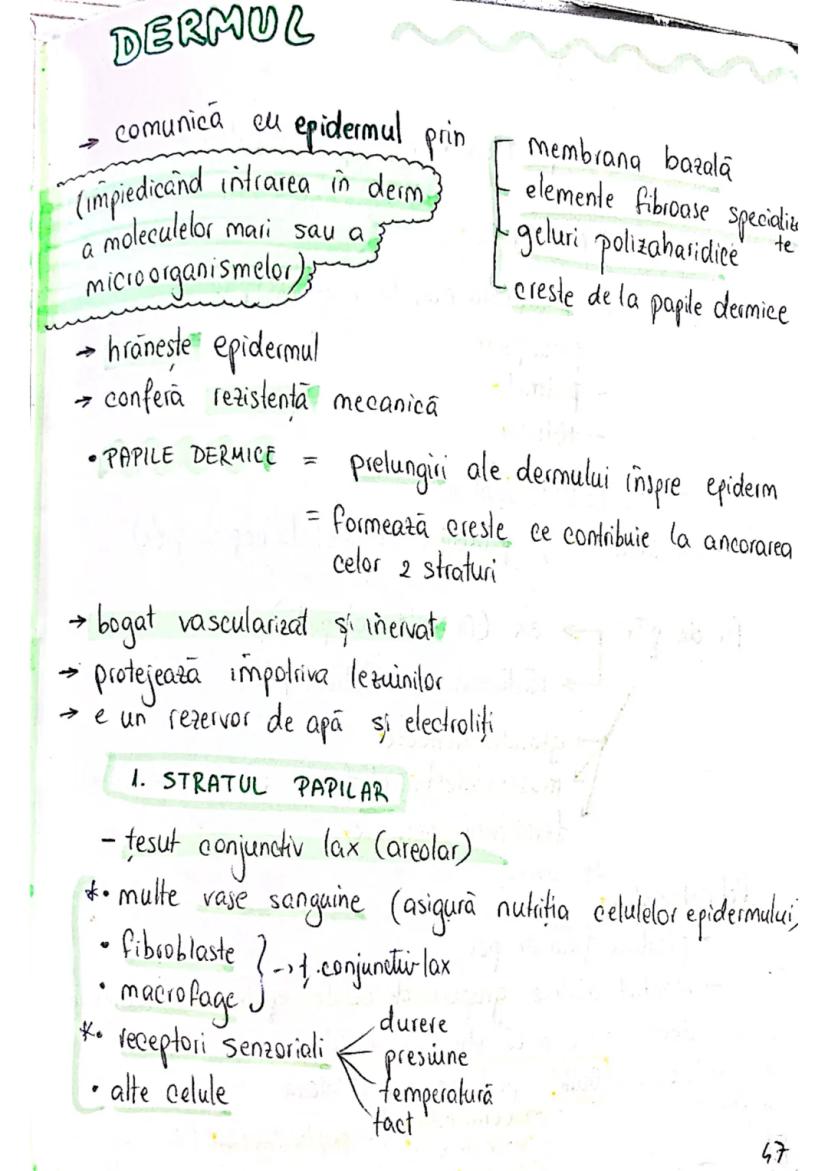 DERMUL
→ comunică cu epidermul prin
membrana bazală
elemente fibroase specializate
geluri polizaharidice
creste de la papile dermice
(împiedicând intrarea în derm
a moleculelor mari sau a
microorganismelor)
→ hrănește epidermul
→ conferă rezistență mecanică
• PAPILE DERMICE = prelungiri ale dermului înspre epiderm
= formează creste ce contribuie la ancorarea
celor 2 straturi
→ bogat vascularizat și inervat
→ protejează împotriva lezuinilor
→ e un rezervor de apă și electroliți
1. STRATUL PAPILAR
- țesut conjunctiv lax (areolar)
*• multe vase sanguine (asigură nutriția celulelor epidermului)
• fibroblaste
• macrofage
→ ț. conjunctiv lax
*• receptori senzoriali
durere
presiune
temperatură
tact
• alte celule
47